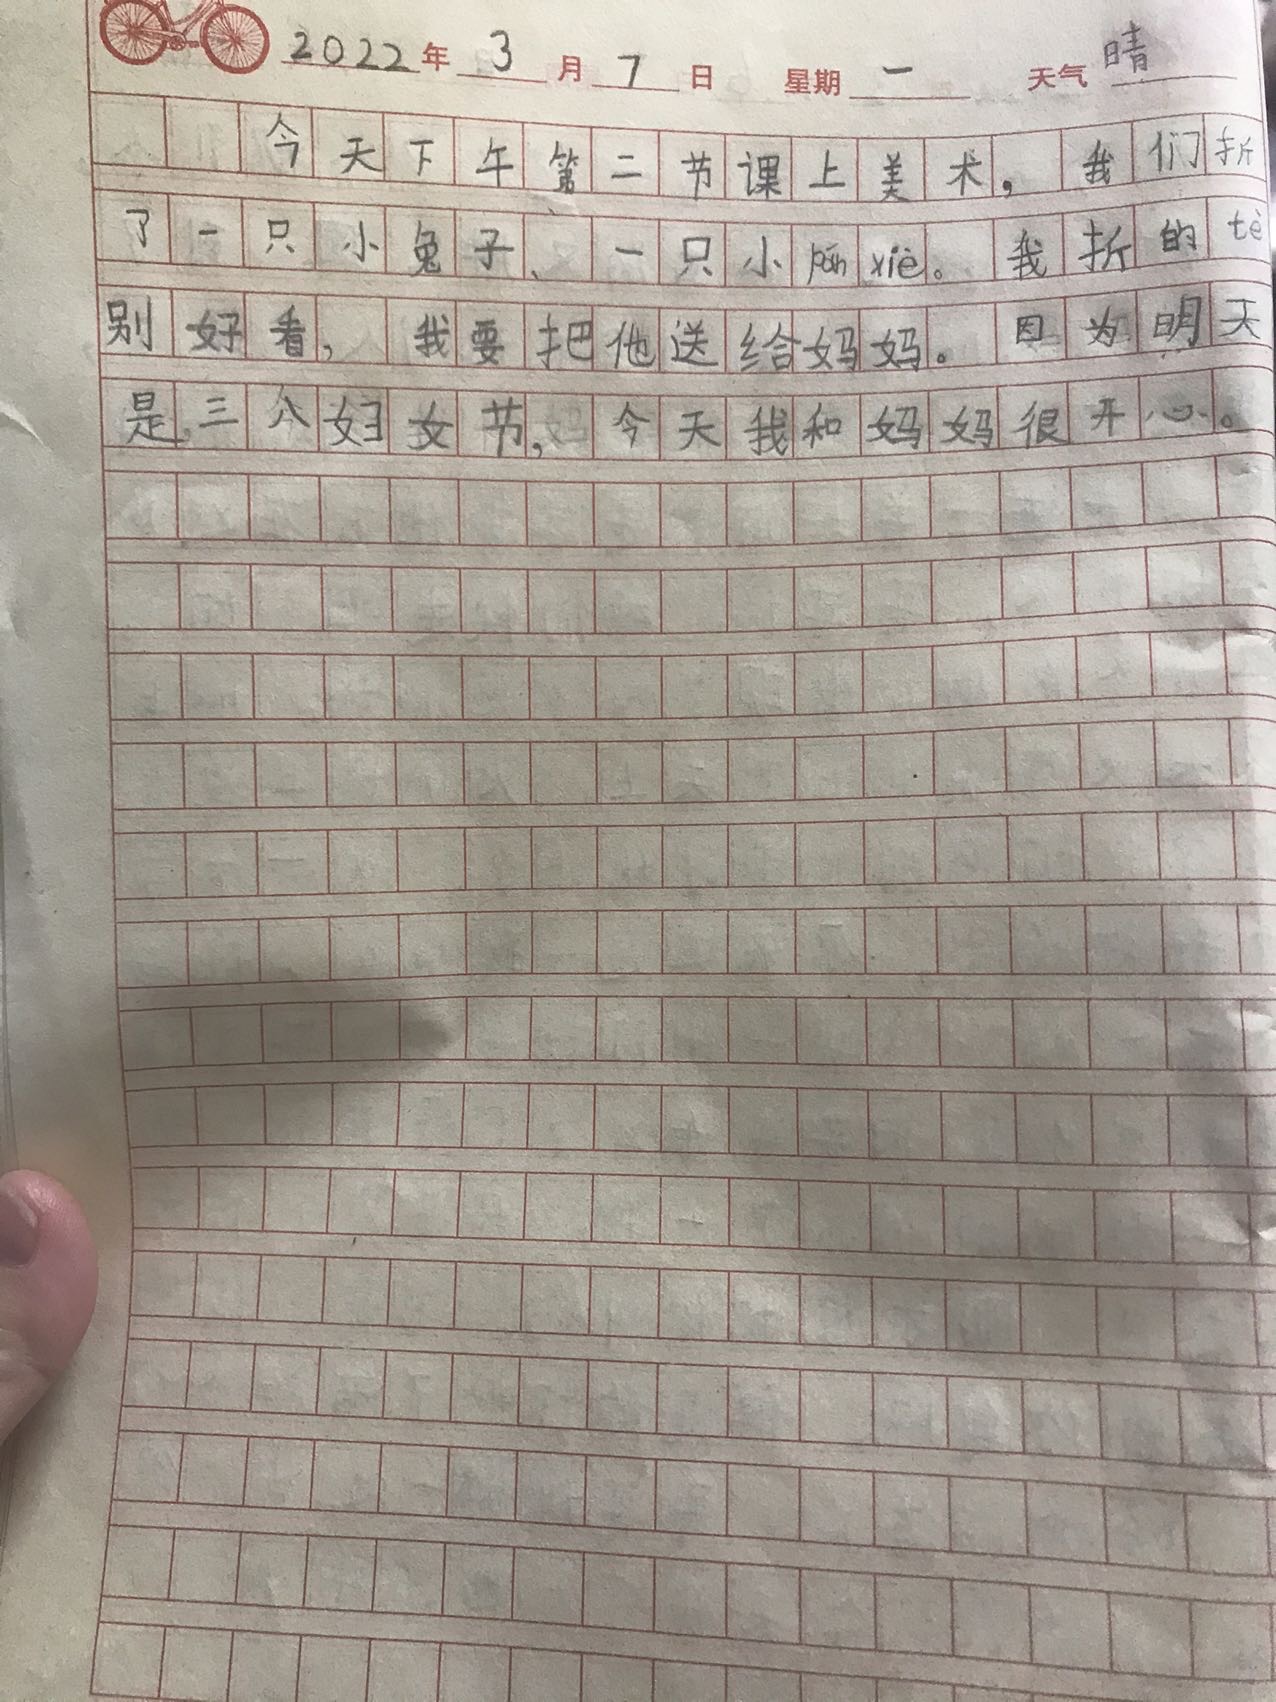 2022年3月7日 星期一 天气晴
今天下午第二节课上美术，我们折
了一只小兔子、一只小pánxiè。我折的tè
别好看，我要把他送给妈妈。因为明天
是三八妇女节，今天我和妈妈很开心。